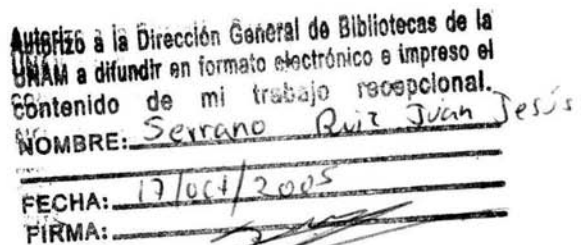 Autorizo a la Dirección General de Bibliotecas de la
UNAM a difundir en formato electrónico e impreso el
contenido de mi trabajo recepcional.
NOMBRE: Serrano Ruiz Juan Jesús
FECHA: 17/oct/2005
FIRMA: